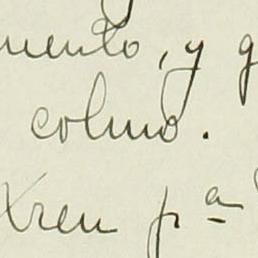 mento, y g
colmo.
Xren pª